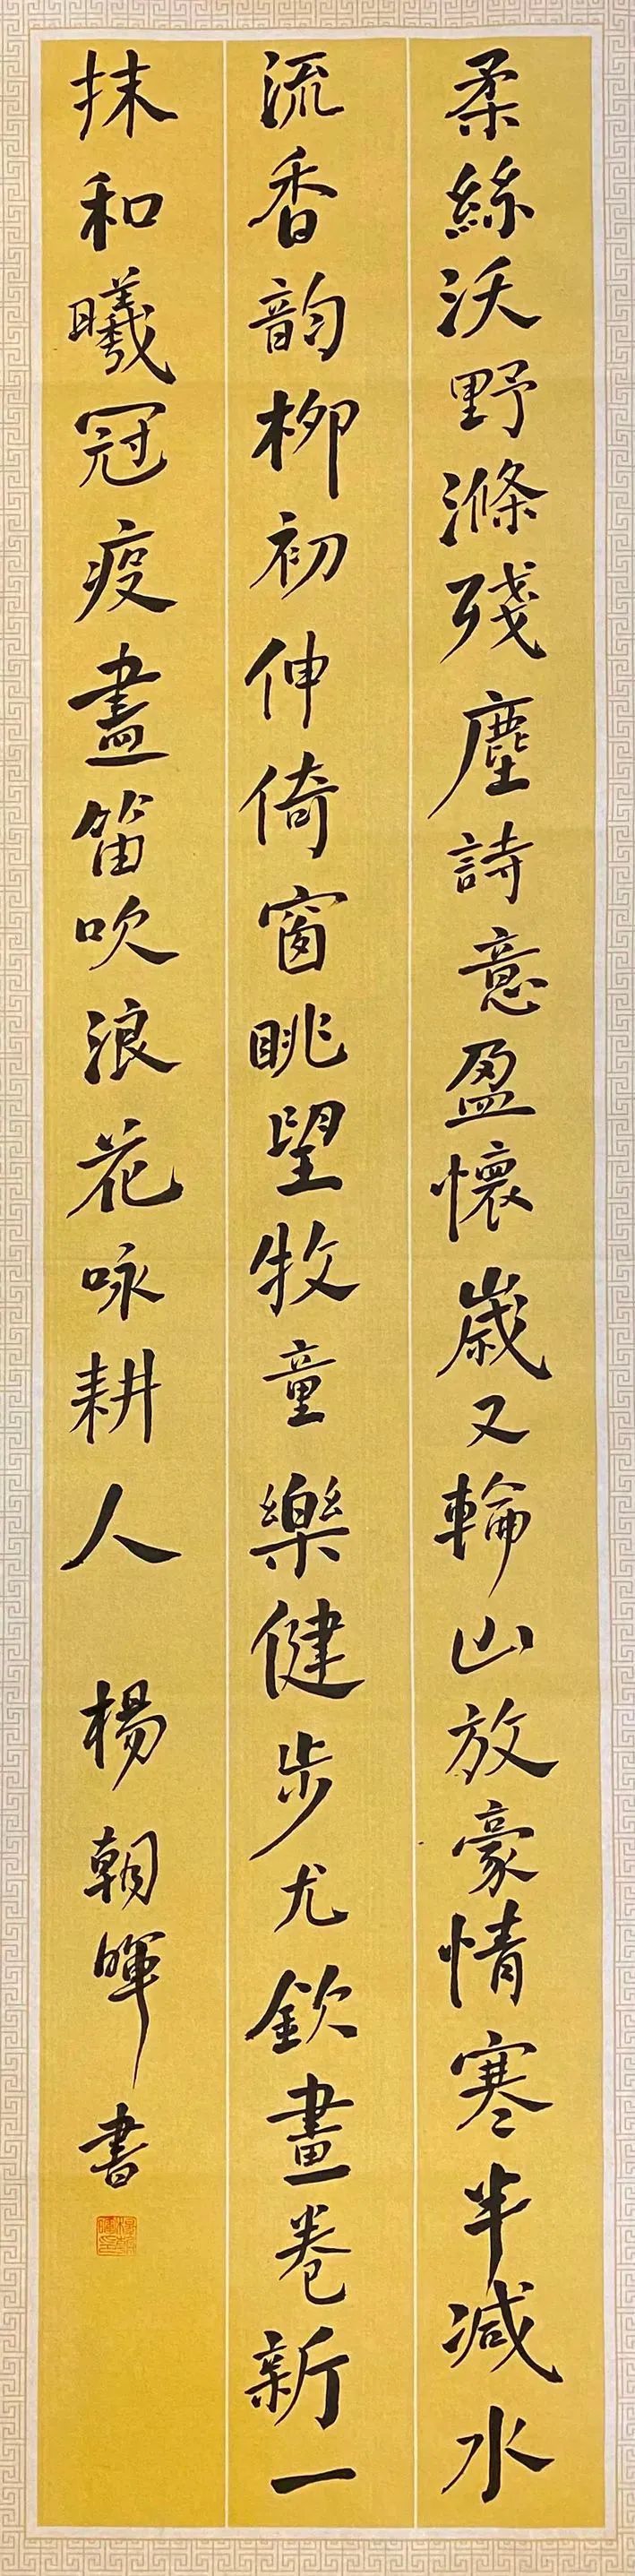 柔絲沃野滌殘塵詩意盈懷歲又輪山放豪情寒半減水
流香韵柳初伸倚窗眺望牧童樂健步尤欽畫卷新一
抹和曦冠疫盡笛吹浪花咏耕人 楊朝暉書